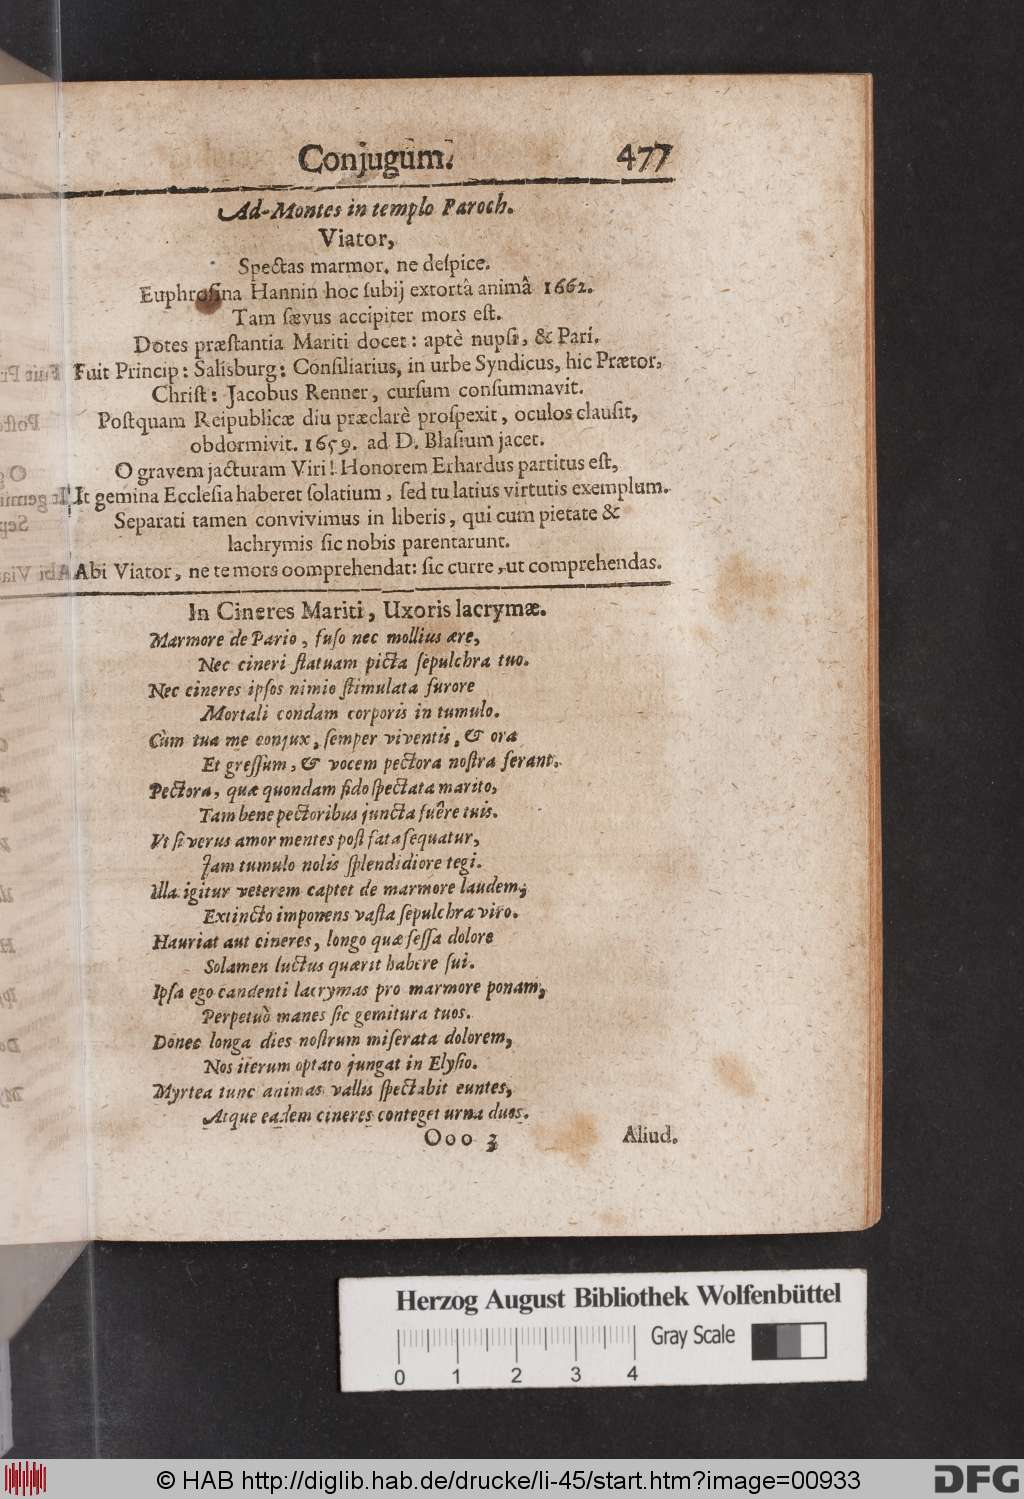 Conjugum. 477
Ad-Montes in templo Paroch.
Viator,
Spectas marmor, ne deſpice.
Euphroſina Hannin hoc ſubij extortâ animâ 1662.
Tam ſævus accipiter mors eſt.
Dotes præſtantia Mariti docet: aptè nupſi, & Pari.
Fuit Princip: Salisburg: Conſiliarius, in urbe Syndicus, hic Prætor,
Chriſt: Jacobus Renner, curſum conſummavit.
Poſtquam Reipublicæ diu præclarè proſpexit, oculos clauſit,
obdormivit. 1659. ad D. Blaſium jacet.
O gravem jacturam Viri! Honorem Erhardus partitus eſt,
It gemina Eccleſia haberet ſolatium, ſed tu latius virtutis exemplum.
Separati tamen convivimus in liberis, qui cum pietate &
lachrymis ſic nobis parentarunt.
Abi Viator, ne te mors oomprehendat: ſic curre, ut comprehendas.
In Cineres Mariti, Uxoris lacrymæ.
Marmore de Pario, fuſo nec mollius ære,
Nec cineri ſtatuam picta ſepulchra tuo.
Nec cineres ipſos nimio ſtimulata furore
Mortali condam corporis in tumulo.
Cùm tua me conjux, ſemper viventis, & ora
Et greſſum, & vocem pectora noſtra ferant.
Pectora, quæ quondam fido ſpectata marito,
Tam bene pectoribus juncta fuêre tuis.
Vt ſi verus amor mentes poſt fata ſequatur,
Jam tumulo nolis ſplendidiore tegi.
Illa igitur veterem captet de marmore laudem,
Extincto imponens vaſta ſepulchra viro.
Hauriat aut cineres, longo quæ feſſa dolore
Solamen luctus quærit habere ſui.
Ipſa ego candenti lacrymas pro marmore ponam,
Perpetuò manes ſic gemitura tuos.
Donec longa dies noſtrum miſerata dolorem,
Nos iterum optato jungat in Elyſio.
Myrtea tunc animas vallis ſpectabit euntes,
Atque eadem cineres conteget urna duos.
Ooo 3 Aliud.
Herzog August Bibliothek Wolfenbüttel
Gray Scale
0 1 2 3 4
© HAB http://diglib.hab.de/drucke/li-45/start.htm?image=00933
DFG